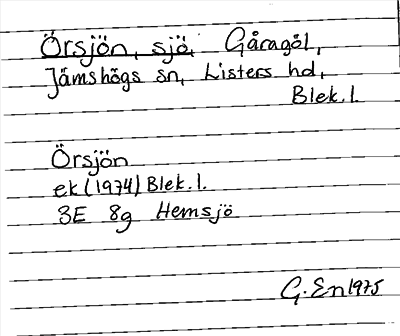 Örsjön, sjö, Gåragöl,
Jämshögs sn, Listers hd,
Blek. l.
Örsjön
ek (1974) Blek. l.
3E 8g Hemsjö
G. En 1975